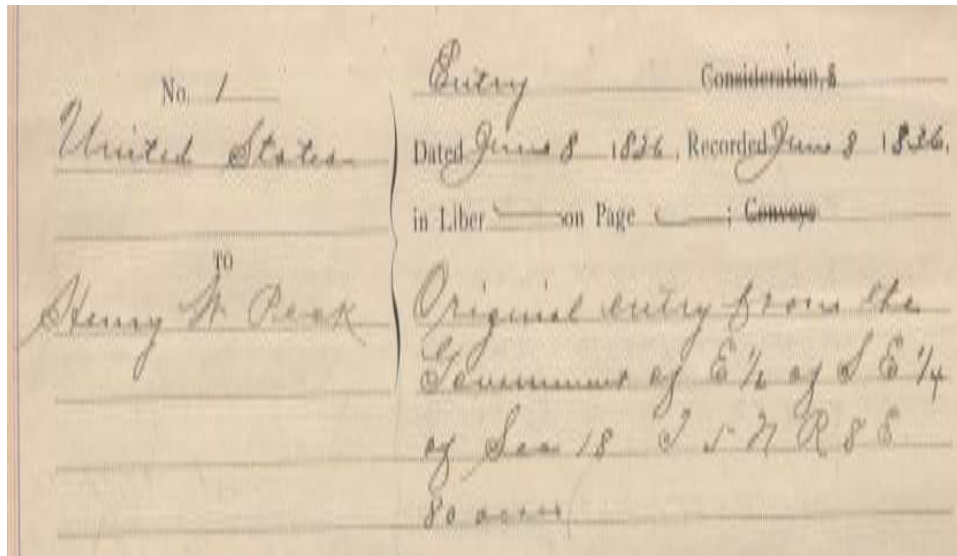 No. 1
United States
TO
Henry W Peak
Entry Consideration, $
Dated June 8 1836, Recorded June 8 1836,
in Liber on Page ; Conveys
Original entry from the
Government of E 1/2 of S E 1/4
of Sec 18 T 5 N R 8 E
80 acres